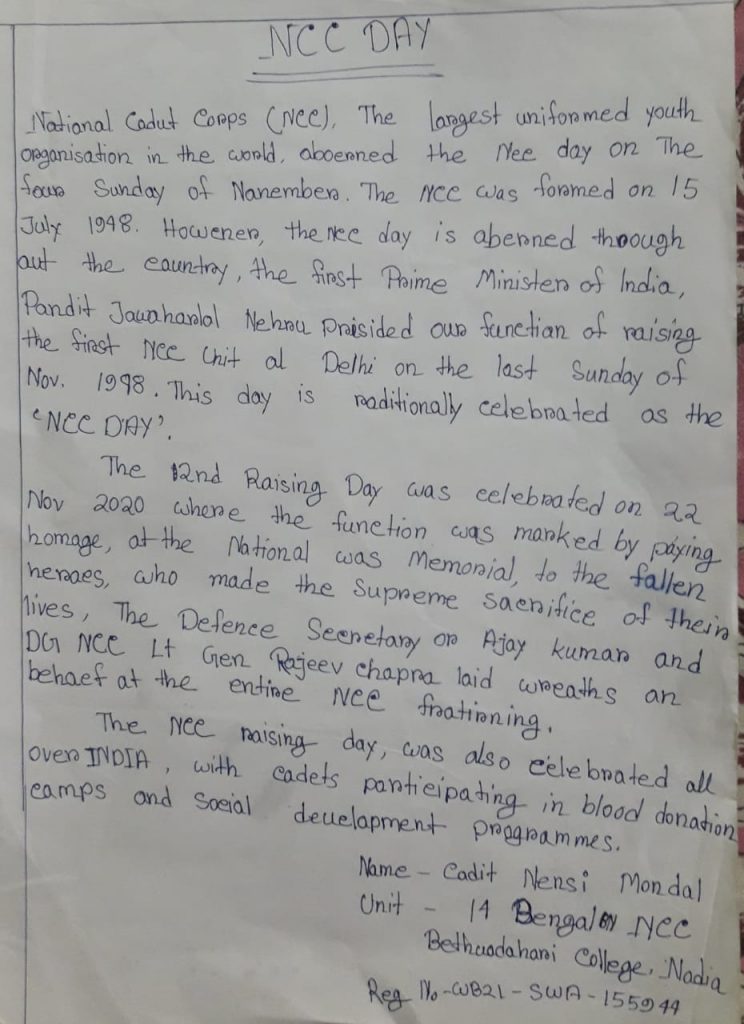 NCC DAY
National Cadut Corps (NCC), The largest uniformed youth
organisation in the world, aboerned the Nee day on The
four Sunday of Nanember. The NCC was formed on 15
July 1948. Howener, the nee day is aberned through
aut the eauntry, the first Prime Minister of India,
Pandit Jawaharlal Nehru prisided our functian of raising
the first NCC Unit al Delhi on the last Sunday of
Nov. 1998. This day is raditionally celebrated as the
'NCC DAY'.
The 12nd Raising Day was eelebrated on 22
Nov 2020 where the function was marked by paying
homage, at the National was Memorial, to the fallen
heroes, who made the Supreme sacrifice of their
lives, The Defence Seeretary or Ajay kumar and
DG NCC Lt Gen Rajeev chapra laid wreaths an
behaef at the entire NCC fratirning.
The NCC raising day, was also celebrated all
over INDIA, with cadets partieipating in blood donation
camps and Soeial deuelapment programmes.
Name - Cadit Nensi Mondal
Unit - 14 Bengal BN NCC
Bethuadahari College, Nadia
Reg No - WB21 - SWA - 155944